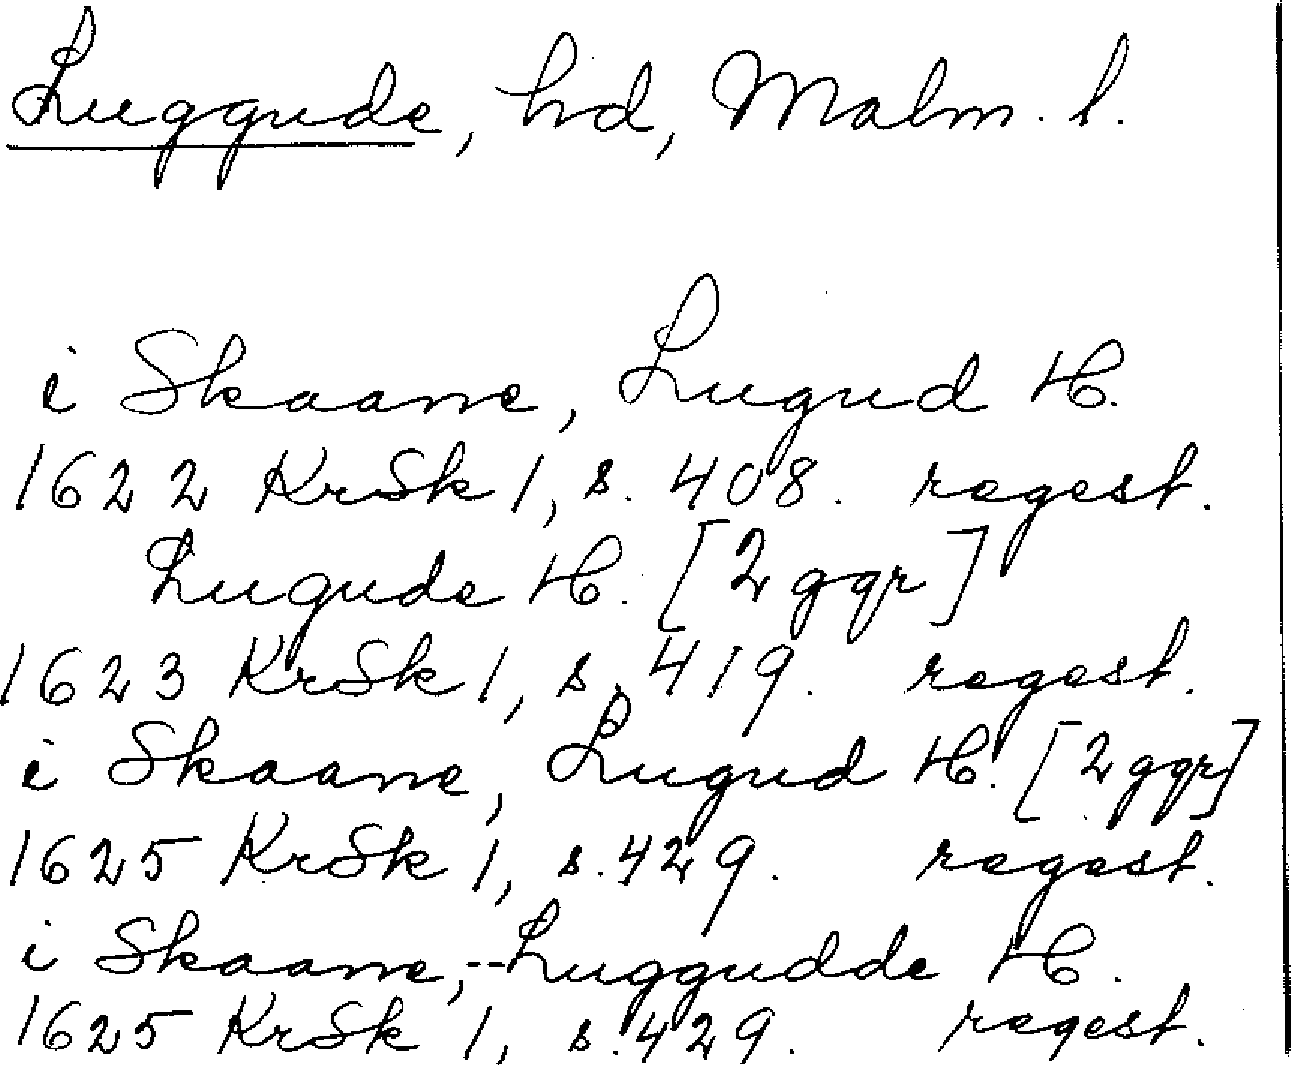 Luggude, hd, Malm. l.
i Skaane, Lugud H.
1622 KrSk 1, s. 408. regest.
Lugude H. [2 ggr]
1623 KrSk 1, s. 419. regest.
i Skaane, Lugud H. [2 ggr]
1625 KrSk 1, s. 429. regest.
i Skaane, -- Luggudde H.
1625 KrSk 1, s. 429. regest.